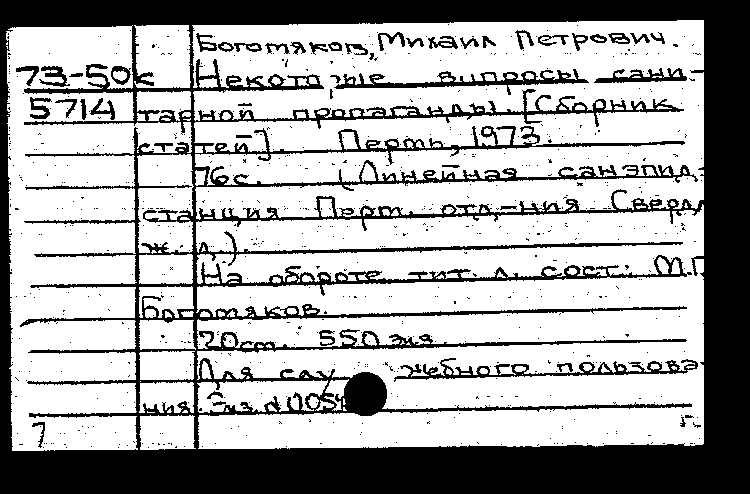 Боготяков, Михаил Петрович.
73-50к Некоторые вопросы сани-
5714 тарной пропаганды. [Сборник
статей]. Пермь, 1973.
76с. (Линейная санэпид-
станция Перм. отд-ния Свердл.
ж. д.).
На обороте тит. л. сост.: М.П.
Боготяков.
20см. 550 экз.
Для служебного пользова-
ния. Экз. №
7